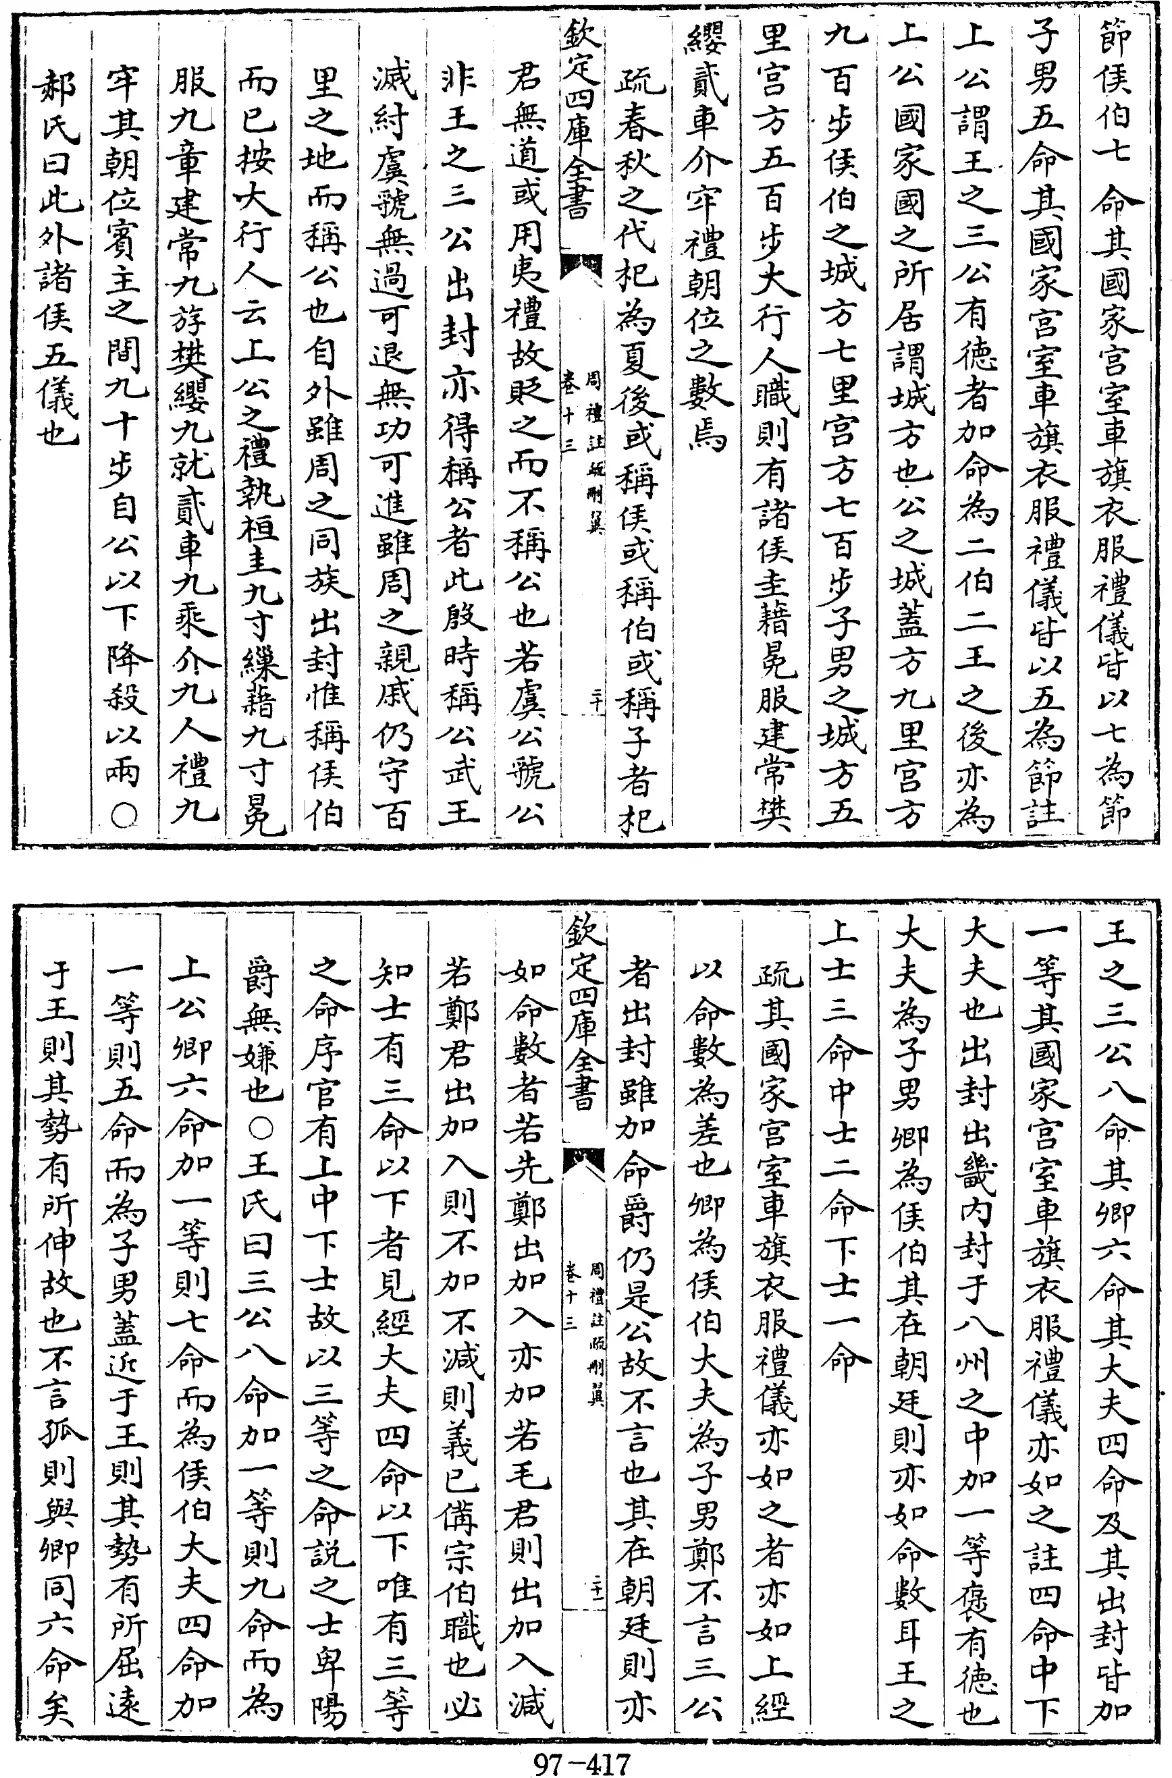 節侯伯七命其國家宫室車旗衣服禮儀皆以七為節
子男五命其國家宫室車旗衣服禮儀皆以五為節註
上公謂王之三公有德者加命為二伯二王之後亦為
上公國家國之所居謂城方也公之城蓋方九里宫方
九百步侯伯之城方七里宫方七百步子男之城方五
里宫方五百步大行人職則有諸侯圭藉冕服建常樊
纓貳車介牢禮朝位之數焉
疏春秋之代杞為夏後或稱侯或稱伯或稱子者杞
欽定四庫全書
周禮註疏刪翼
卷十三
二十
君無道或用夷禮故貶之而不稱公也若虞公虢公
非王之三公出封亦得稱公者此殷時稱公武王
滅紂虞虢無過可退無功可進雖周之親戚仍守百
里之地而稱公也自外雖周之同族出封惟稱侯伯
而已按大行人云上公之禮執桓圭九寸繅藉九寸冕
服九章建常九斿樊纓九就貳車九乘介九人禮九
牢其朝位賓主之間九十步自公以下降殺以兩○
郝氏曰此外諸侯五儀也
王之三公八命其卿六命其大夫四命及其出封皆加
一等其國家宫室車旗衣服禮儀亦如之註四命中下
大夫也出封出畿内封于八州之中加一等褒有德也
大夫為子男卿為侯伯其在朝廷則亦如命數耳王之
上士三命中士二命下士一命
疏其國家宫室車旗衣服禮儀亦如之者亦如上經
以命數為差也卿為侯伯大夫為子男鄭不言三公
者出封雖加命爵仍是公故不言也其在朝廷則亦
欽定四庫全書
周禮註疏刪翼
卷十三
二十一
如命數者若先鄭出加入亦加若毛君則出加入減
若鄭君出加入則不加不減則義已備宗伯職也必
知士有三命以下者見經大夫四命以下唯有三等
之命序官有上中下士故以三等之命説之士卑陽
爵無嫌也○王氏曰三公八命加一等則九命而為
上公卿六命加一等則七命而為侯伯大夫四命加
一等則五命而為子男蓋近于王則其勢有所屈遠
于王則其勢有所伸故也不言孤則與卿同六命矣
97-417